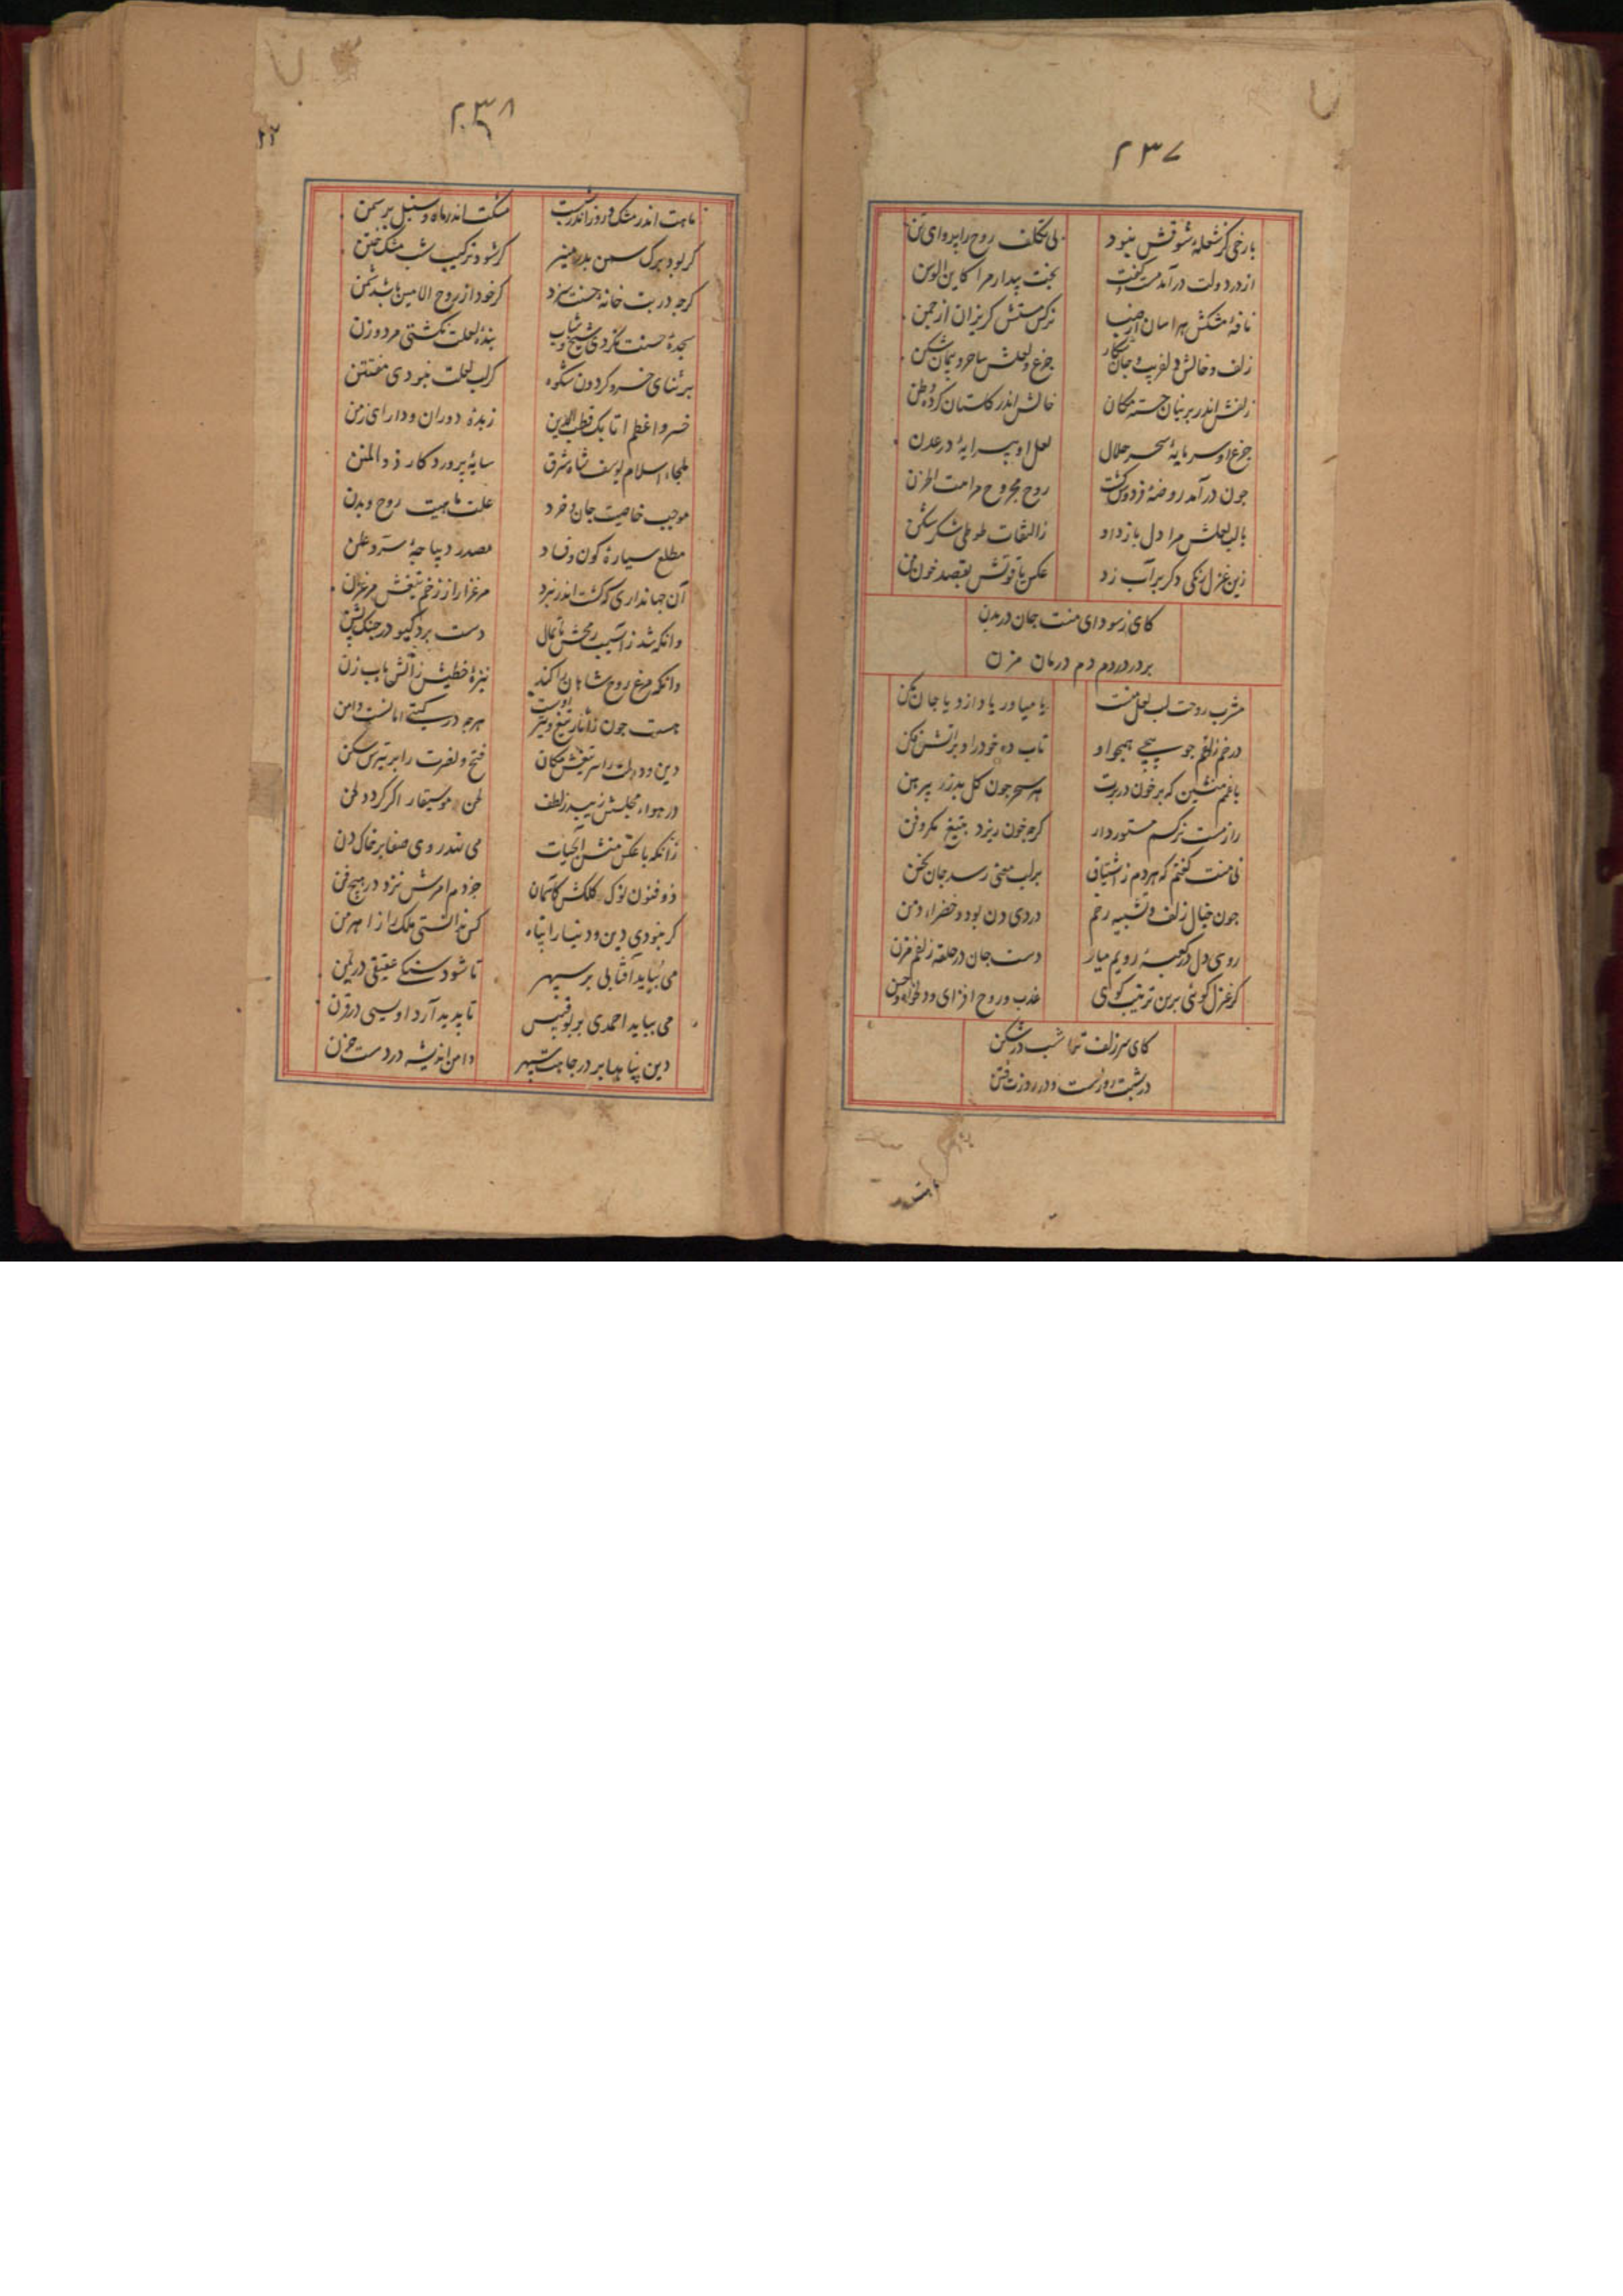 ۲۳۷
با رخی کز شعلهٔ شوقش نبود بی تکلف روح را پروای تن
از در دولت درآمد مست گفت بخت بیدار مرا کاین الوسن
نافهٔ مشکش هراسان از نرکس مستش کریزان از چمن
زلف و خالش دلفریب و جان شکار جزع و لعلش ساحر و پیمان شکن
زلفش اندر پرنیان جسته مکان خالش اندر کلستان کرده وطن
جزع او سرمایهٔ سحر حلال لعل او پیرایهٔ در عدن
جون درآمد روضهٔ فردوس کشت روح مجروح مرا بیت الحزن
با لب لعلش مرا دل باز داد زالتفات طوطی شکرشکن
زین غزل رنکی دکر بر آب زد عکس یاقوتش بقصد خون من
کای ز سودای منت جان در بدن
بر در دردم دم درمان مزن
مشرب روحت لب لعل منست یا میاور یاد ازو یا جان بکن
در خم زلفم جو پیچی همچو او تاب ده خود را و بر آتش فکن
با غمم منشین که بر خون دربرت هر سحر جون کل بدرد پیرهن
راز مست نرکسم مستور دار کرچه خون ریزد بتیغ مکر و فن
نی منت کفتم که هر دم ز اشتیاق بر لب معنی رسد جان سخن
جون خیال زلف و تشبیه رخم در دی دن بود و خضراء دمن
روی دل در کعبهٔ رویم میار دست جان در حلقهٔ زلفم مزن
کر غزل کوئی برین ترتیب کوی عذب و روح افزای و دلخواه و حسن
کای سر زلف ترا شب در شکن
در شبت روزست و در روزت فتن
۲۳۸
ماهت اندر مشک و روز اندر شبست مشکت اندر ماه و سنبل بر سمن
کر بود برک سمن بدر منیر کر شود ترکیب شب مشک ختن
کرجه در بت خانه جسنت سزد کر خود از روح الامین باشد شمن
سجدهٔ حسنت نکردی شیخ و شاب بندهٔ لعلت نکشتی مرد و زن
بر ثنای خسرو کردون شکوه کر لب لعلت نبودی مفتتن
خسرو اعظم اتابک قطب الدین زبدهٔ دوران و دارای زمن
ملجاء اسلام یوسف شاه شرق سایهٔ پروردکار ذو المنن
موجب خاصیت جان و خرد علت ماهیت روح و بدن
مطلع سیارهٔ کون و فساد مصدر دیباجهٔ سر و علن
آن جهانداری که کشت اندر نبرد مرغزار از زخم تیغش مرغزن
وانکه شد ز آسیب رمحش پایمال دست برد کیو در جنک پشن
وانکه مرغ روح شاهان را کند نیزهٔ خطیش ز آتش باب زن
هست جون ز آثار تیغ و تیر اوست هرجه در کیتی امانست و امن
دین و دولت را سر تیغش مکان فتح و نصرت را بر تیرش سکن
در هواء مجلسش زیبد ز لطف لحن موسیقار اکر کردد لحن
زانکه با عکس منش آب حیات می نهد روی صفا بر خاک دن
ذو فنون نوک کلکش کآسمان جز دم امرش نزد در هیج فن
کر نبودی دین و دنیا را پناه کس ندانستی ملک را ز اهرمن
می بباید آفتابی بر سپهر تا شود سنکی عقیقی در یمن
می بباید احمدی بر بوقبیس تا پدید آرد اویسی در قرن
دین پناها بر در جاهت سپهر دامن اندیشه در دست حزن